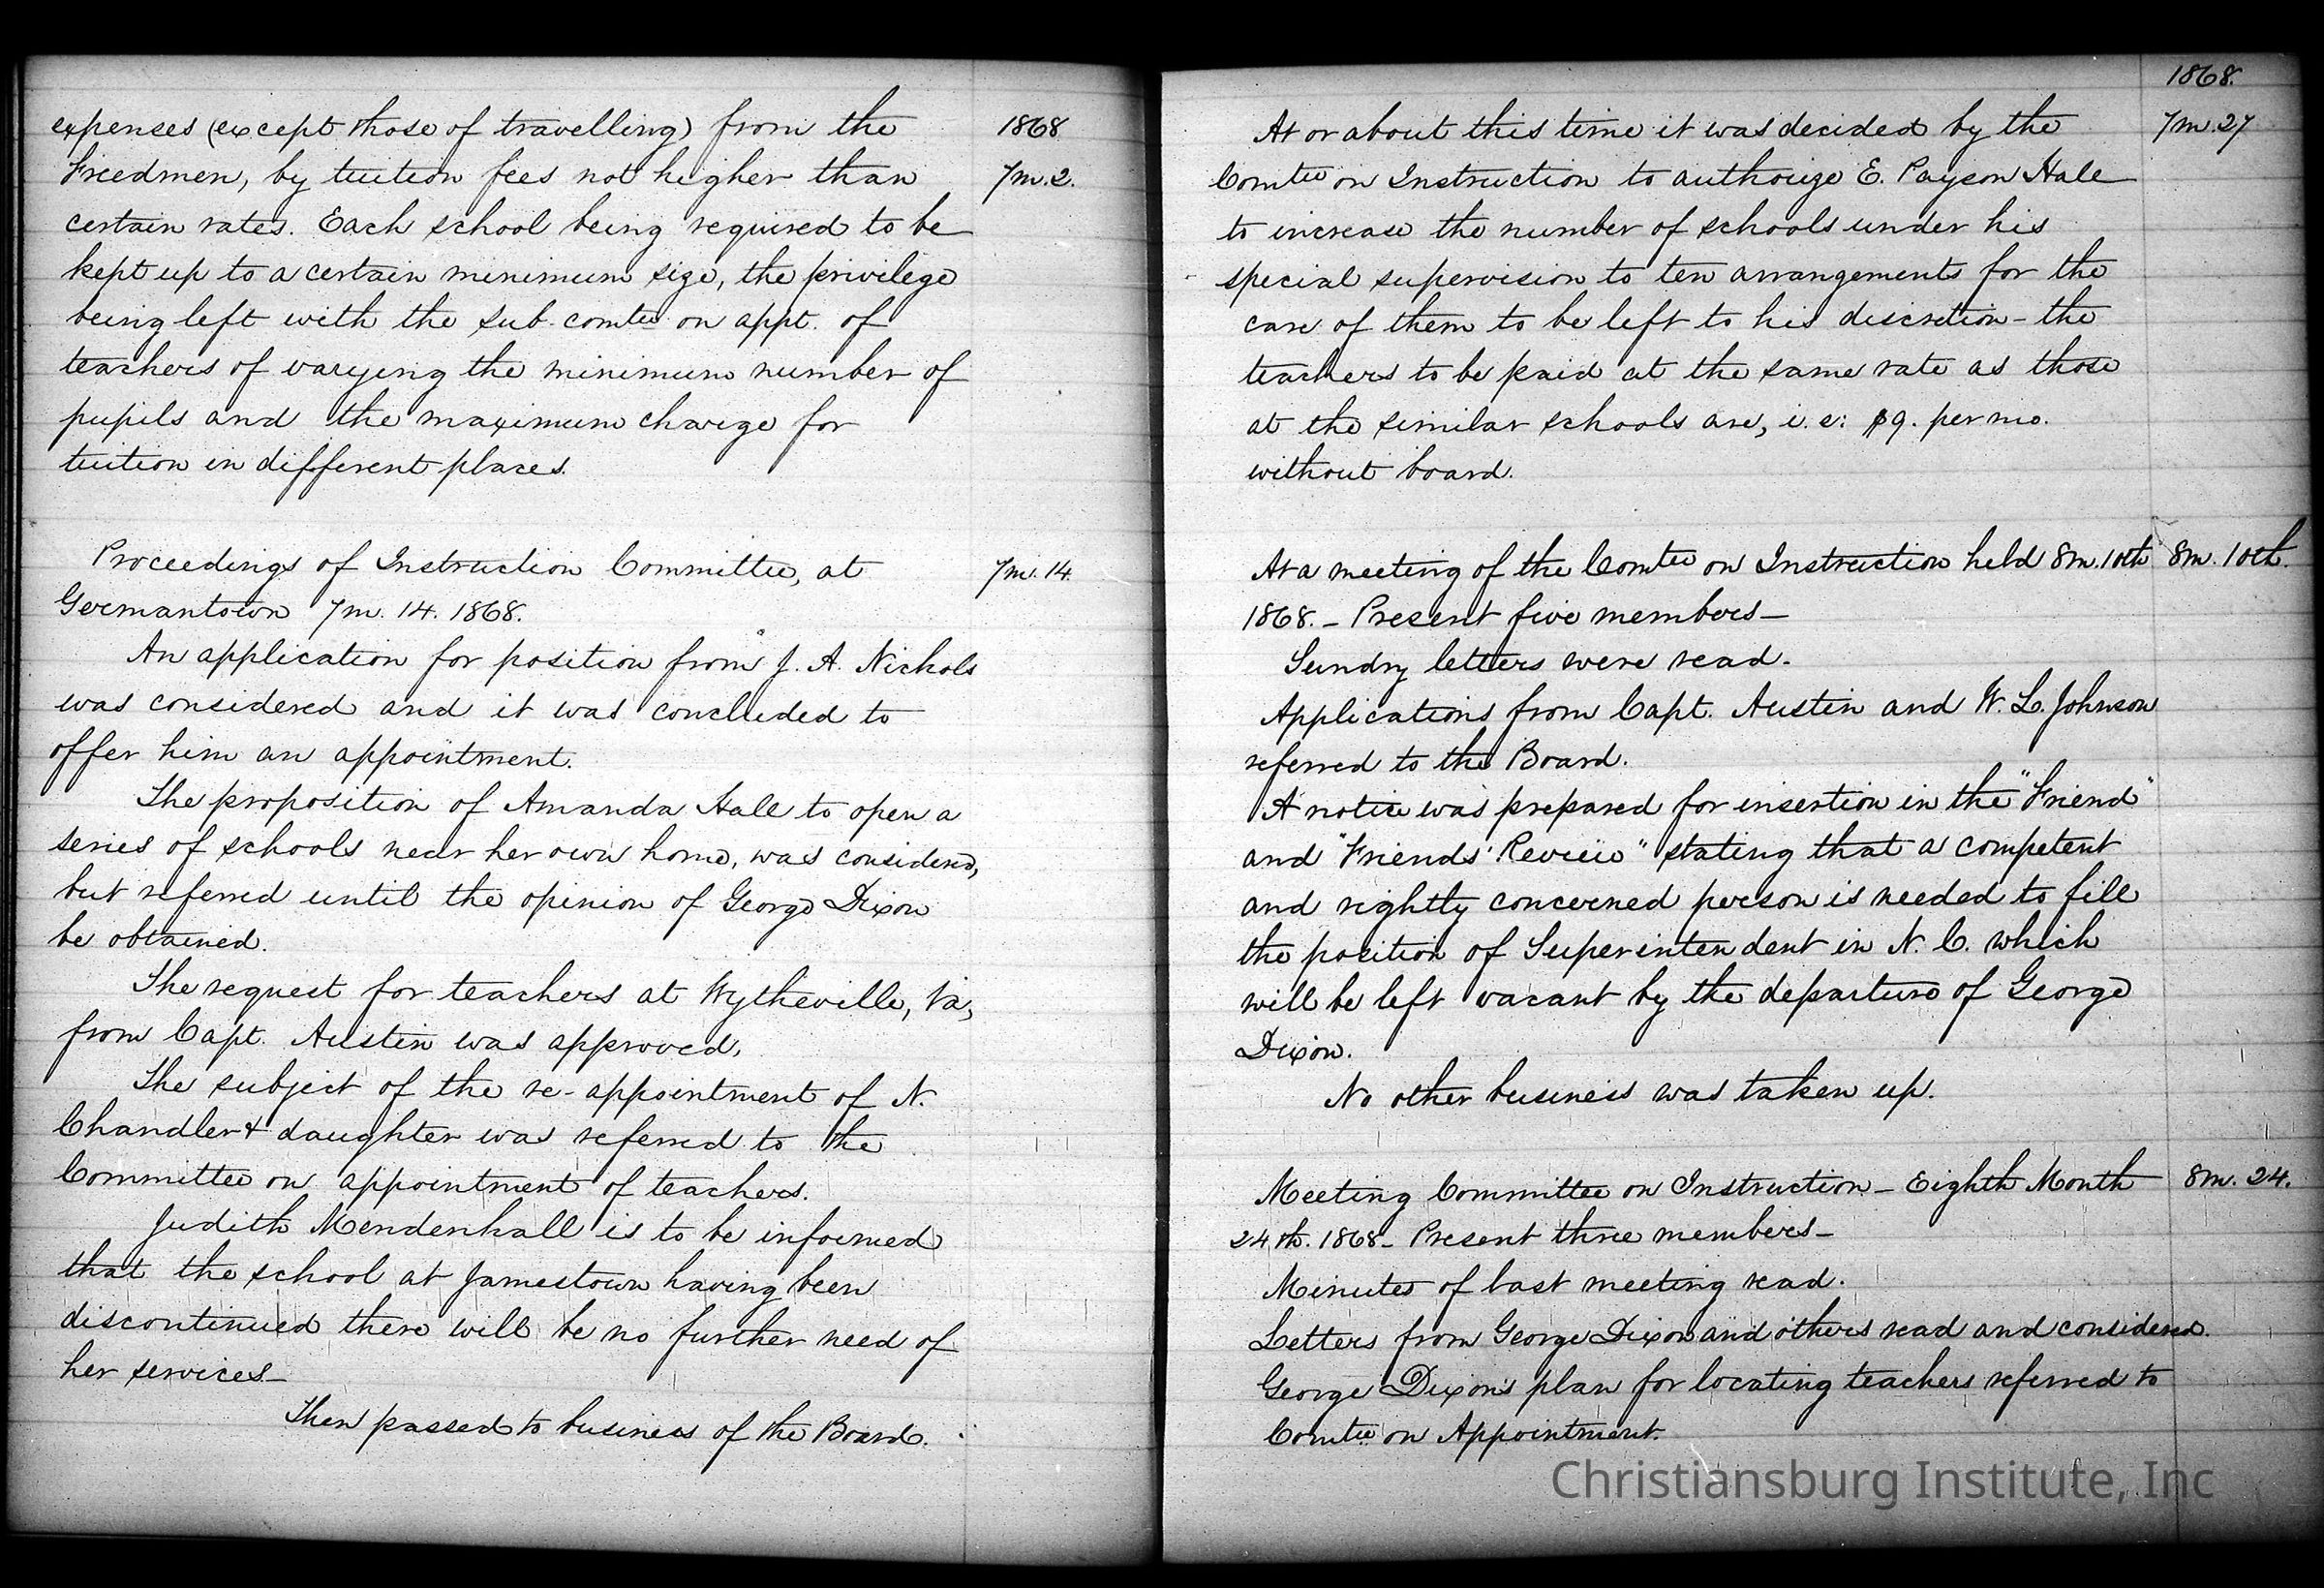 expenses (except those of travelling) from the
1868
Freedmen, by tuition fees not higher than
7m.2.
certain rates. Each school being required to be
kept up to a certain minimum size, the privilege
being left with the sub. comtee on appt. of
teachers of varying the minimum number of
pupils and the maximum charge for
tuition in different places.
Proceedings of Instruction Committee, at
7m. 14.
Germantown 7m. 14. 1868.
An application for position from J. A. Nichols
was considered and it was concluded to
offer him an appointment.
The proposition of Amanda Hale to open a
series of schools near her own home, was considered,
but referred until the opinion of George Dixon
be obtained.
The request for teachers at Wytheville, Va,
from Capt. Austin was approved.
The subject of the re-appointment of N.
Chandler & daughter was referred to the
Committee on appointment of teachers.
Judith Mendenhall is to be informed
that the school at Jamestown having been
discontinued there will be no further need of
her services—
Then passed to business of the Board.
1868.
At or about this time it was decided by the
7m.27
Comtee on Instruction to authorize E. Payson Hale
to increase the number of schools under his
special supervision to ten arrangements for the
care of them to be left to his discretion - the
teachers to be paid at the same rate as those
at the similar schools are, i.e: $9. per mo.
without board.
At a meeting of the Comtee on Instruction held 8m.10th
8m. 10th.
1868. - Present five members—
Sundry letters were read.
Applications from Capt. Austin and W. L. Johnson
referred to the Board.
A notice was prepared for insertion in the "Friend"
and "Friends' Review" stating that a competent
and rightly concerned person is needed to fill
the position of Superintendent in N. C. which
will be left vacant by the departure of George
Dixon.
No other business was taken up.
Meeting Committee on Instruction - Eighth Month
8m. 24.
24th. 1868 - Present three members—
Minutes of last meeting read.
Letters from George Dixon and others read and considered.
George Dixon's plan for locating teachers referred to
Comtee on Appointment.
Christiansburg Institute, Inc